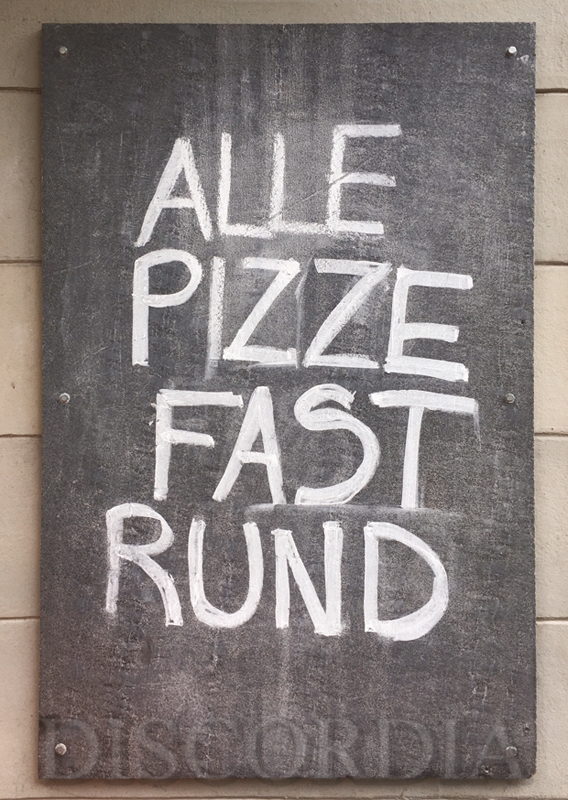 ALLE
PIZZE
FAST
RUND
DISCORDIA